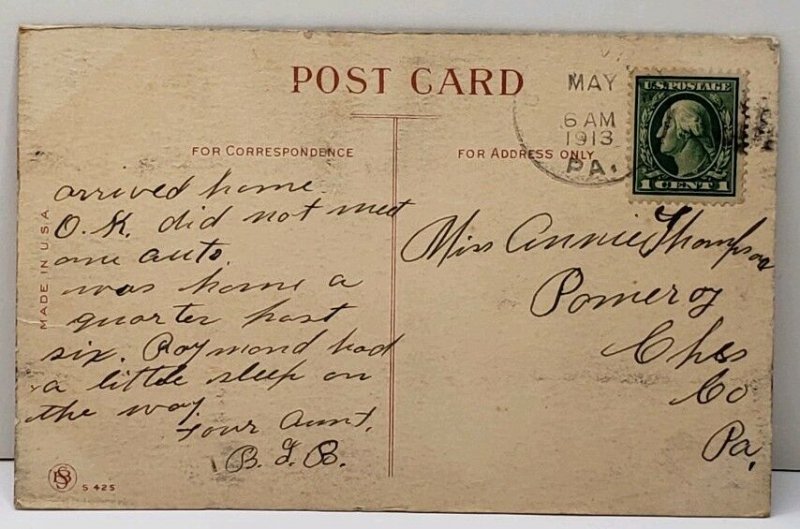 POST CARD
FOR CORRESPONDENCE
FOR ADDRESS ONLY
MAY
6 AM
1913
PA.
U.S. POSTAGE
1 CENT 1
MADE IN U.S.A.
arrived home
O.K. did not meet
one auto.
was home a
quarter past
six. Raymond had
a little sleep on
the way.
Your Aunt,
B. J. B.
Miss Annie Thompson
Pomeroy
Ches
Co
Pa.
S 425